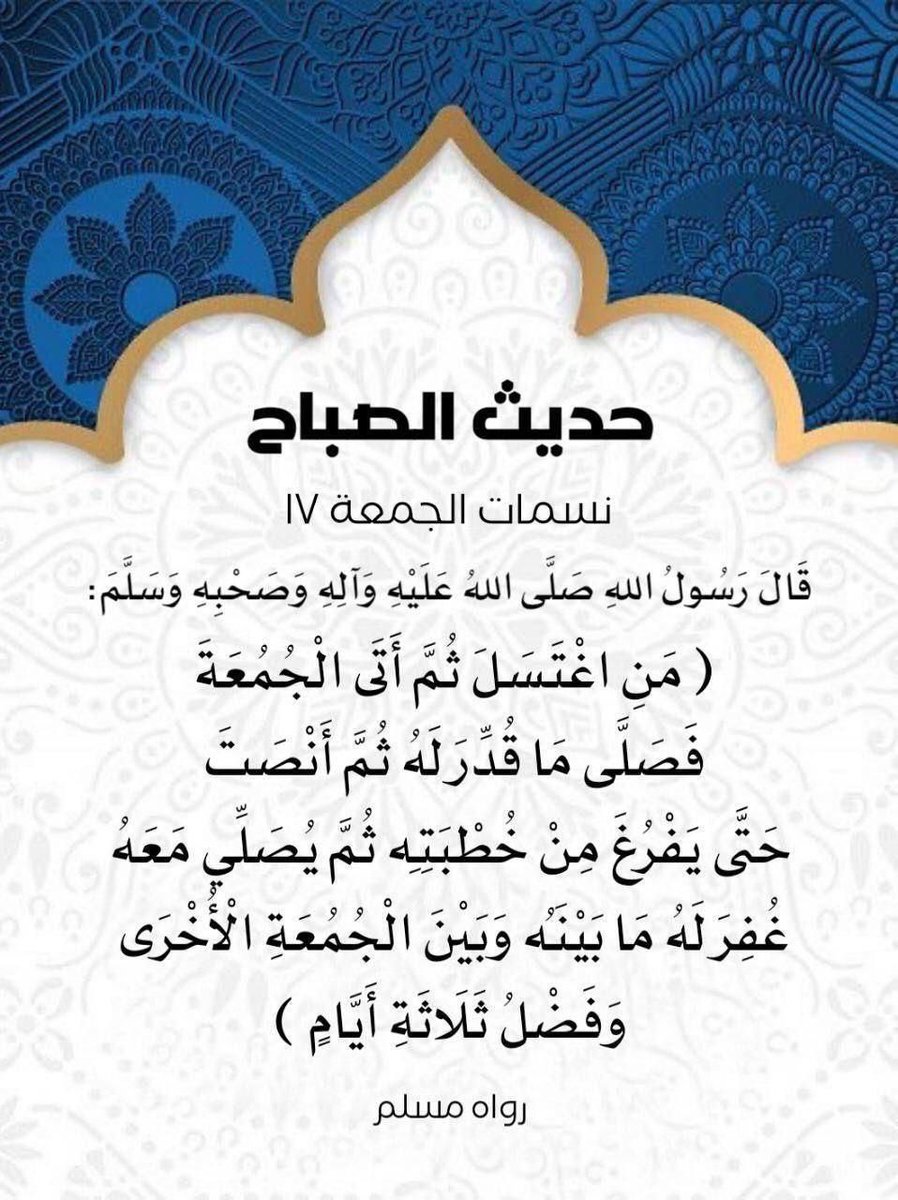 حديث الصباح
نسمات الجمعة ١٧
قَالَ رَسُولُ اللهِ صَلَّى اللهُ عَلَيْهِ وَآلِهِ وَصَحْبِهِ وَسَلَّمَ:
( مَنِ اغْتَسَلَ ثُمَّ أَتَى الْجُمُعَةَ
فَصَلَّى مَا قُدِّرَ لَهُ ثُمَّ أَنْصَتَ
حَتَّى يَفْرُغَ مِنْ خُطْبَتِهِ ثُمَّ يُصَلِّي مَعَهُ
غُفِرَ لَهُ مَا بَيْنَهُ وَبَيْنَ الْجُمُعَةِ الْأُخْرَى
وَفَضْلُ ثَلَاثَةِ أَيَّامٍ )
رواه مسلم